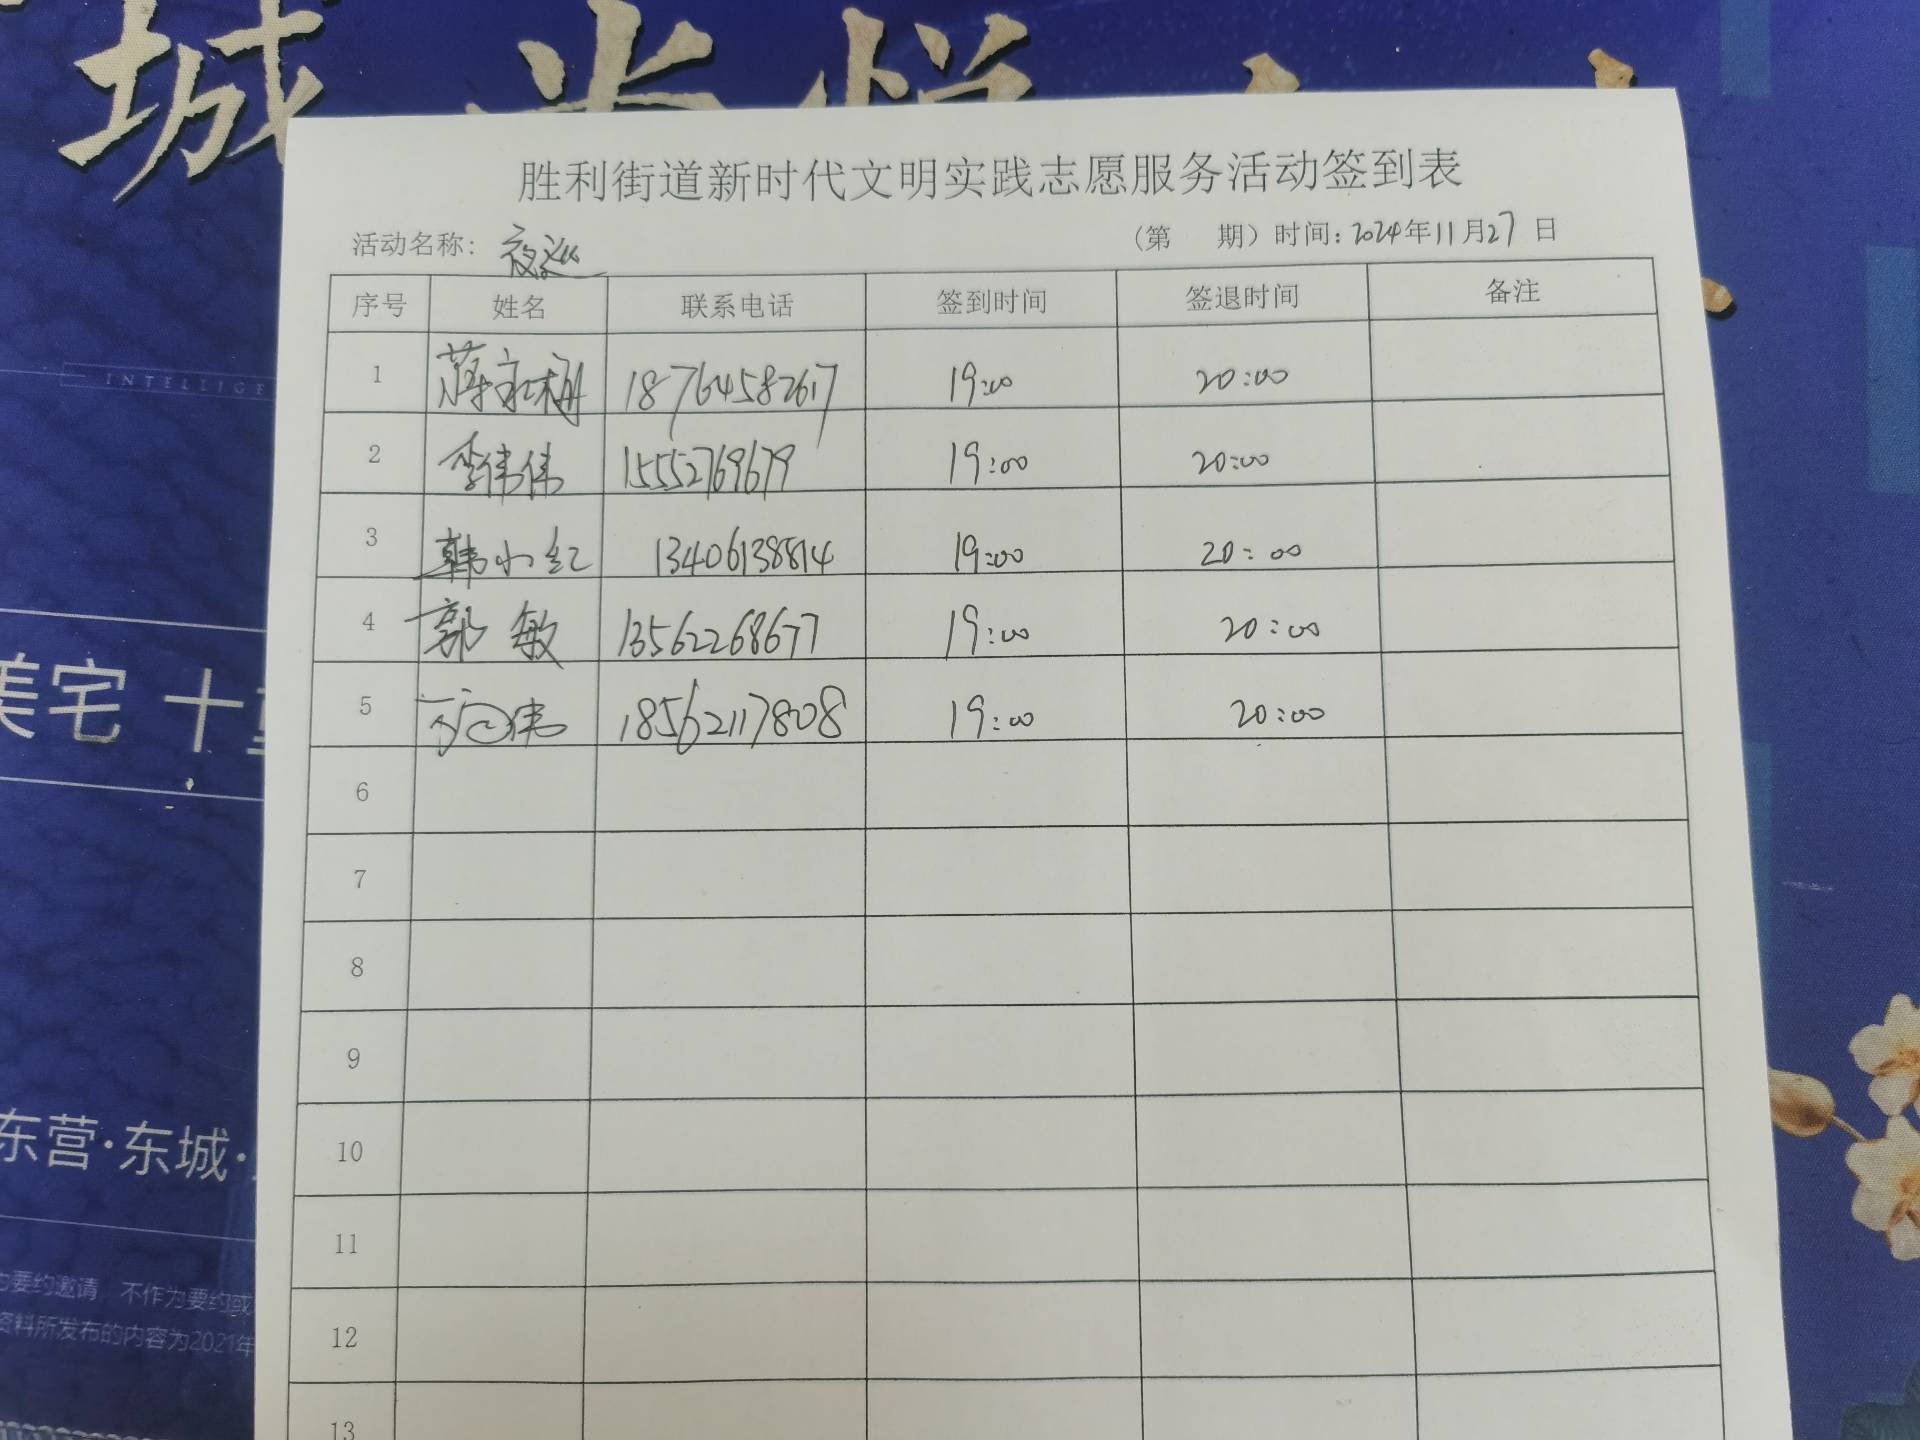 城
INTELLIGE
美宅 十
东营·东城·
为要约邀请，不作为要约或
资料所发布的内容为2021年
胜利街道新时代文明实践志愿服务活动签到表
活动名称: 夜巡 (第 期) 时间: 2024年11月27日
序号 姓名 联系电话 签到时间 签退时间 备注
1 蒋永梅 18764582617 19:00 20:00
2 李伟伟 15552769679 19:00 20:00
3 韩小红 13406138814 19:00 20:00
4 郭敏 13562268677 19:00 20:00
5 伟 18562117808 19:00 20:00
6
7
8
9
10
11
12
13